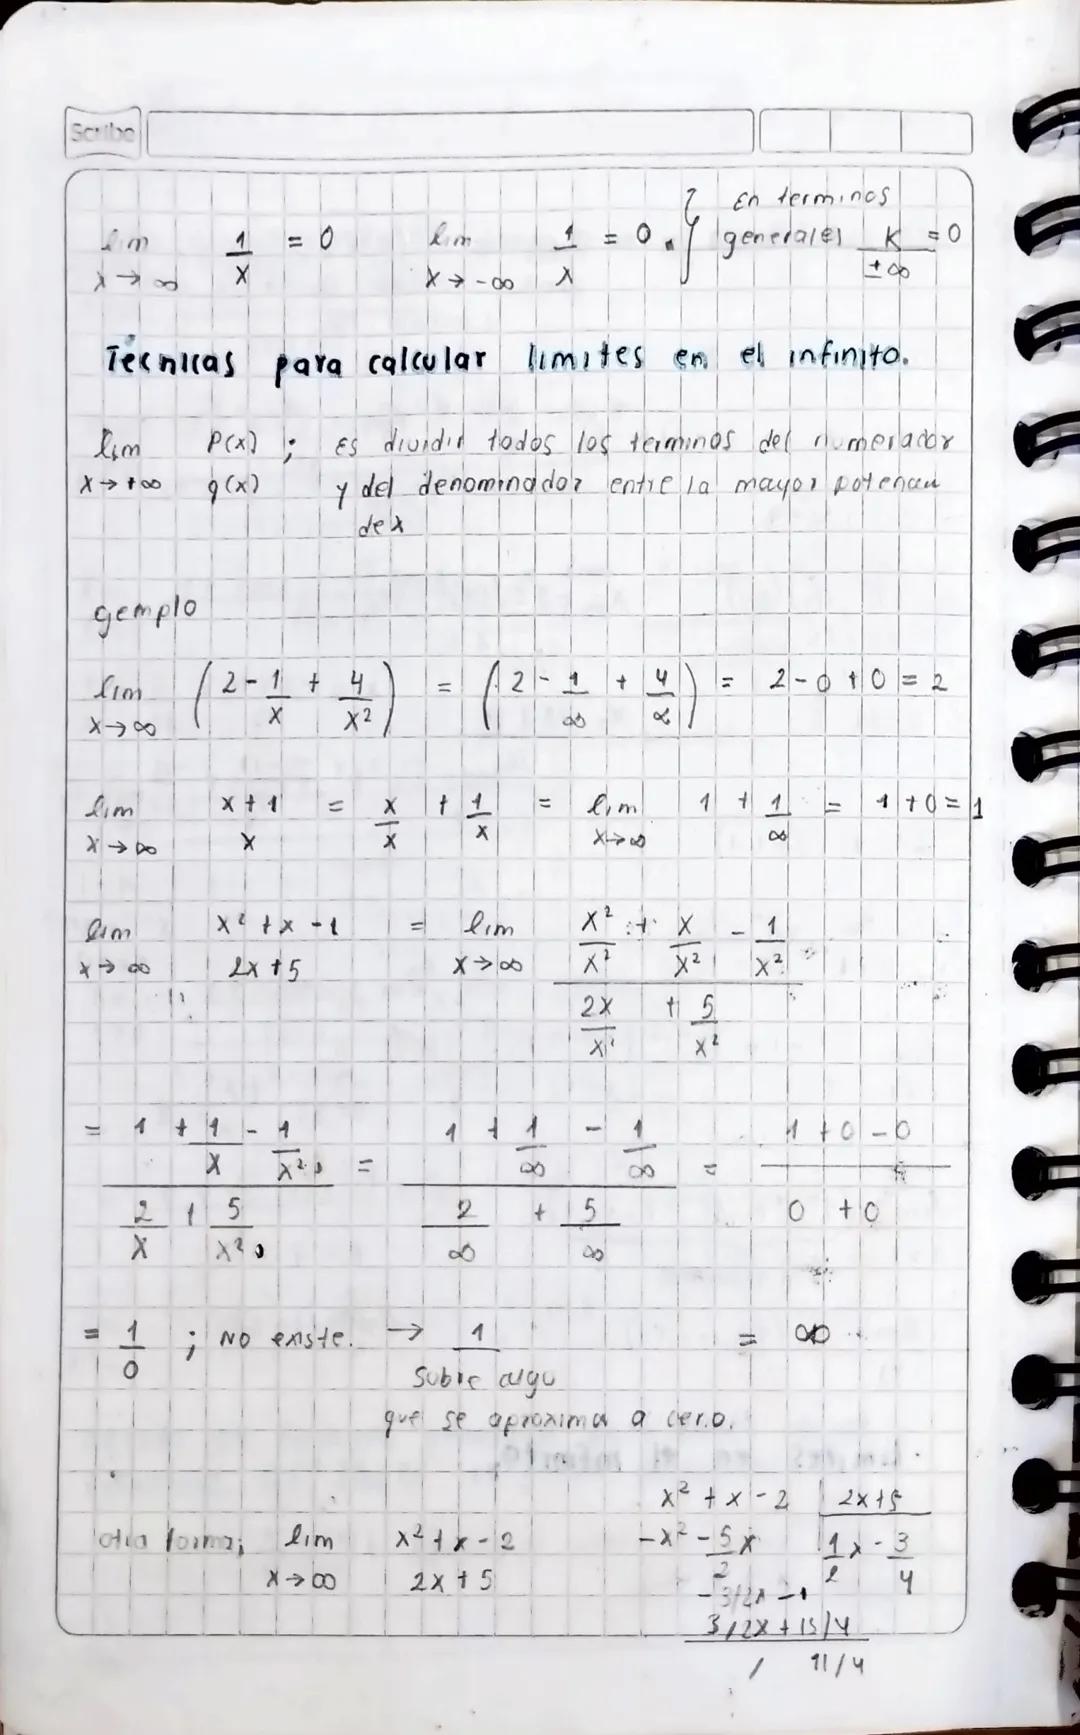 Scribe
lim 1/x = 0 lim 1/x = 0. } En terminos
x → ∞ x → -∞ generales K/±∞ = 0
Técnicas para calcular limites en el infinito.
lim P(x) ; Es dividir todos los terminos del numerador
x → +∞ q(x) y del denominador entre la mayor potencia
de x
ejemplo
lim (2 - 1/x + 4/x²) = (2 - 1/∞ + 4/∞) = 2 - 0 + 0 = 2
x → ∞
lim x + 1 / x = x/x + 1/x = lim 1 + 1/∞ = 1 + 0 = 1
x → ∞ x → ∞
lim x² + x - 1 = lim x²/x² + x/x² - 1/x²
x → ∞ 2x + 5 x → ∞ 2x/x² + 5/x²
= 1 + 1/x - 1/x² = 1 + 1/∞ - 1/∞ = 1 + 0 - 0
2/x + 5/x² 2/∞ + 5/∞ 0 + 0
= 1/0 ; No existe. → 1 = ∞
Sobre algo
que se aproxima a cero.
x² + x - 2 | 2x + 5
otra forma; lim x² + x - 2 -x² - 5/2 x 1/2 x - 3/4
x → ∞ 2x + 5 -3/2x - 1
3/2x + 15/4
/ 11/4